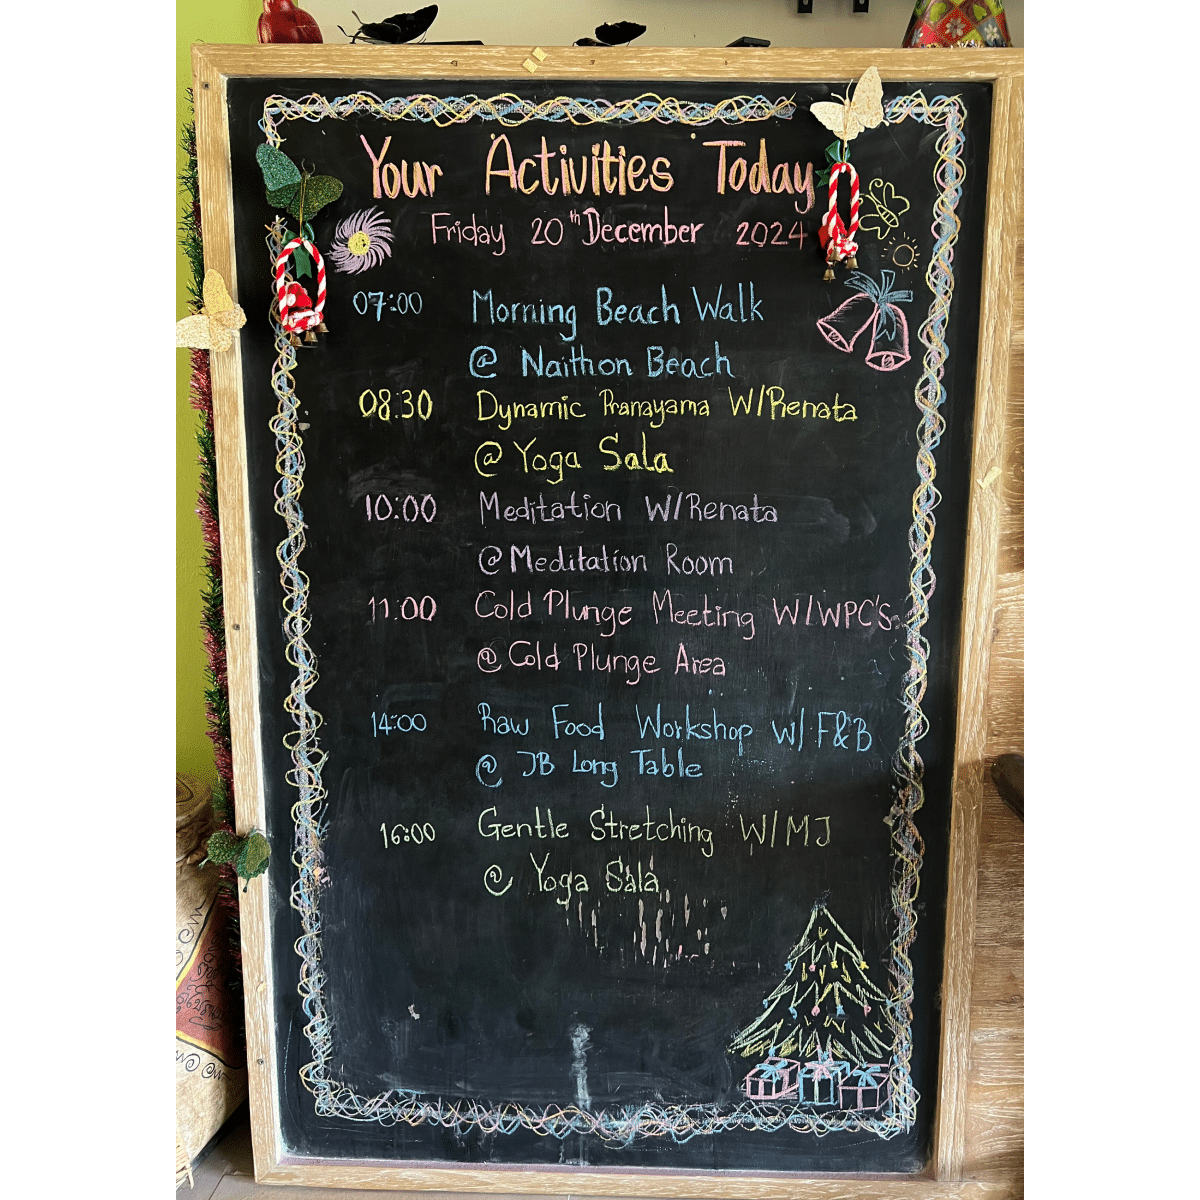 Your Activities Today
Friday 20th December 2024
07:00 Morning Beach Walk
@ Naithon Beach
08.30 Dynamic Pranayama W/Renata
@ Yoga Sala
10:00 Meditation W/Renata
@ Meditation Room
11.00 Cold Plunge Meeting W/WPC's
@ Cold Plunge Area
14:00 Raw Food Workshop W/ F&B
@ JB Long Table
16:00 Gentle Stretching W/MJ
@ Yoga Sala